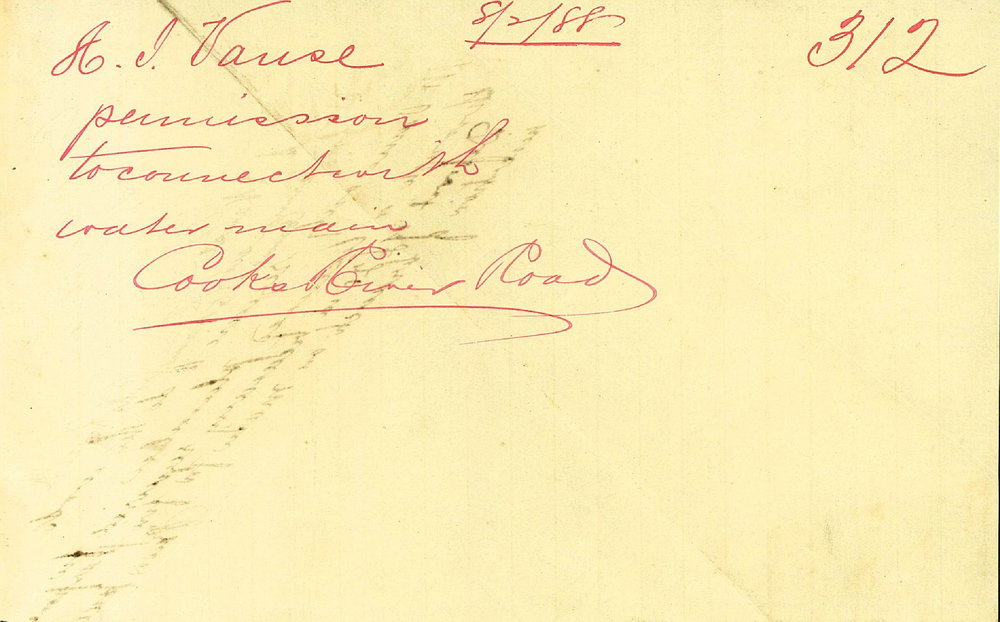 8/2/88
312
A. J. Vause
permission
to connect with
water main
Cooks River Road